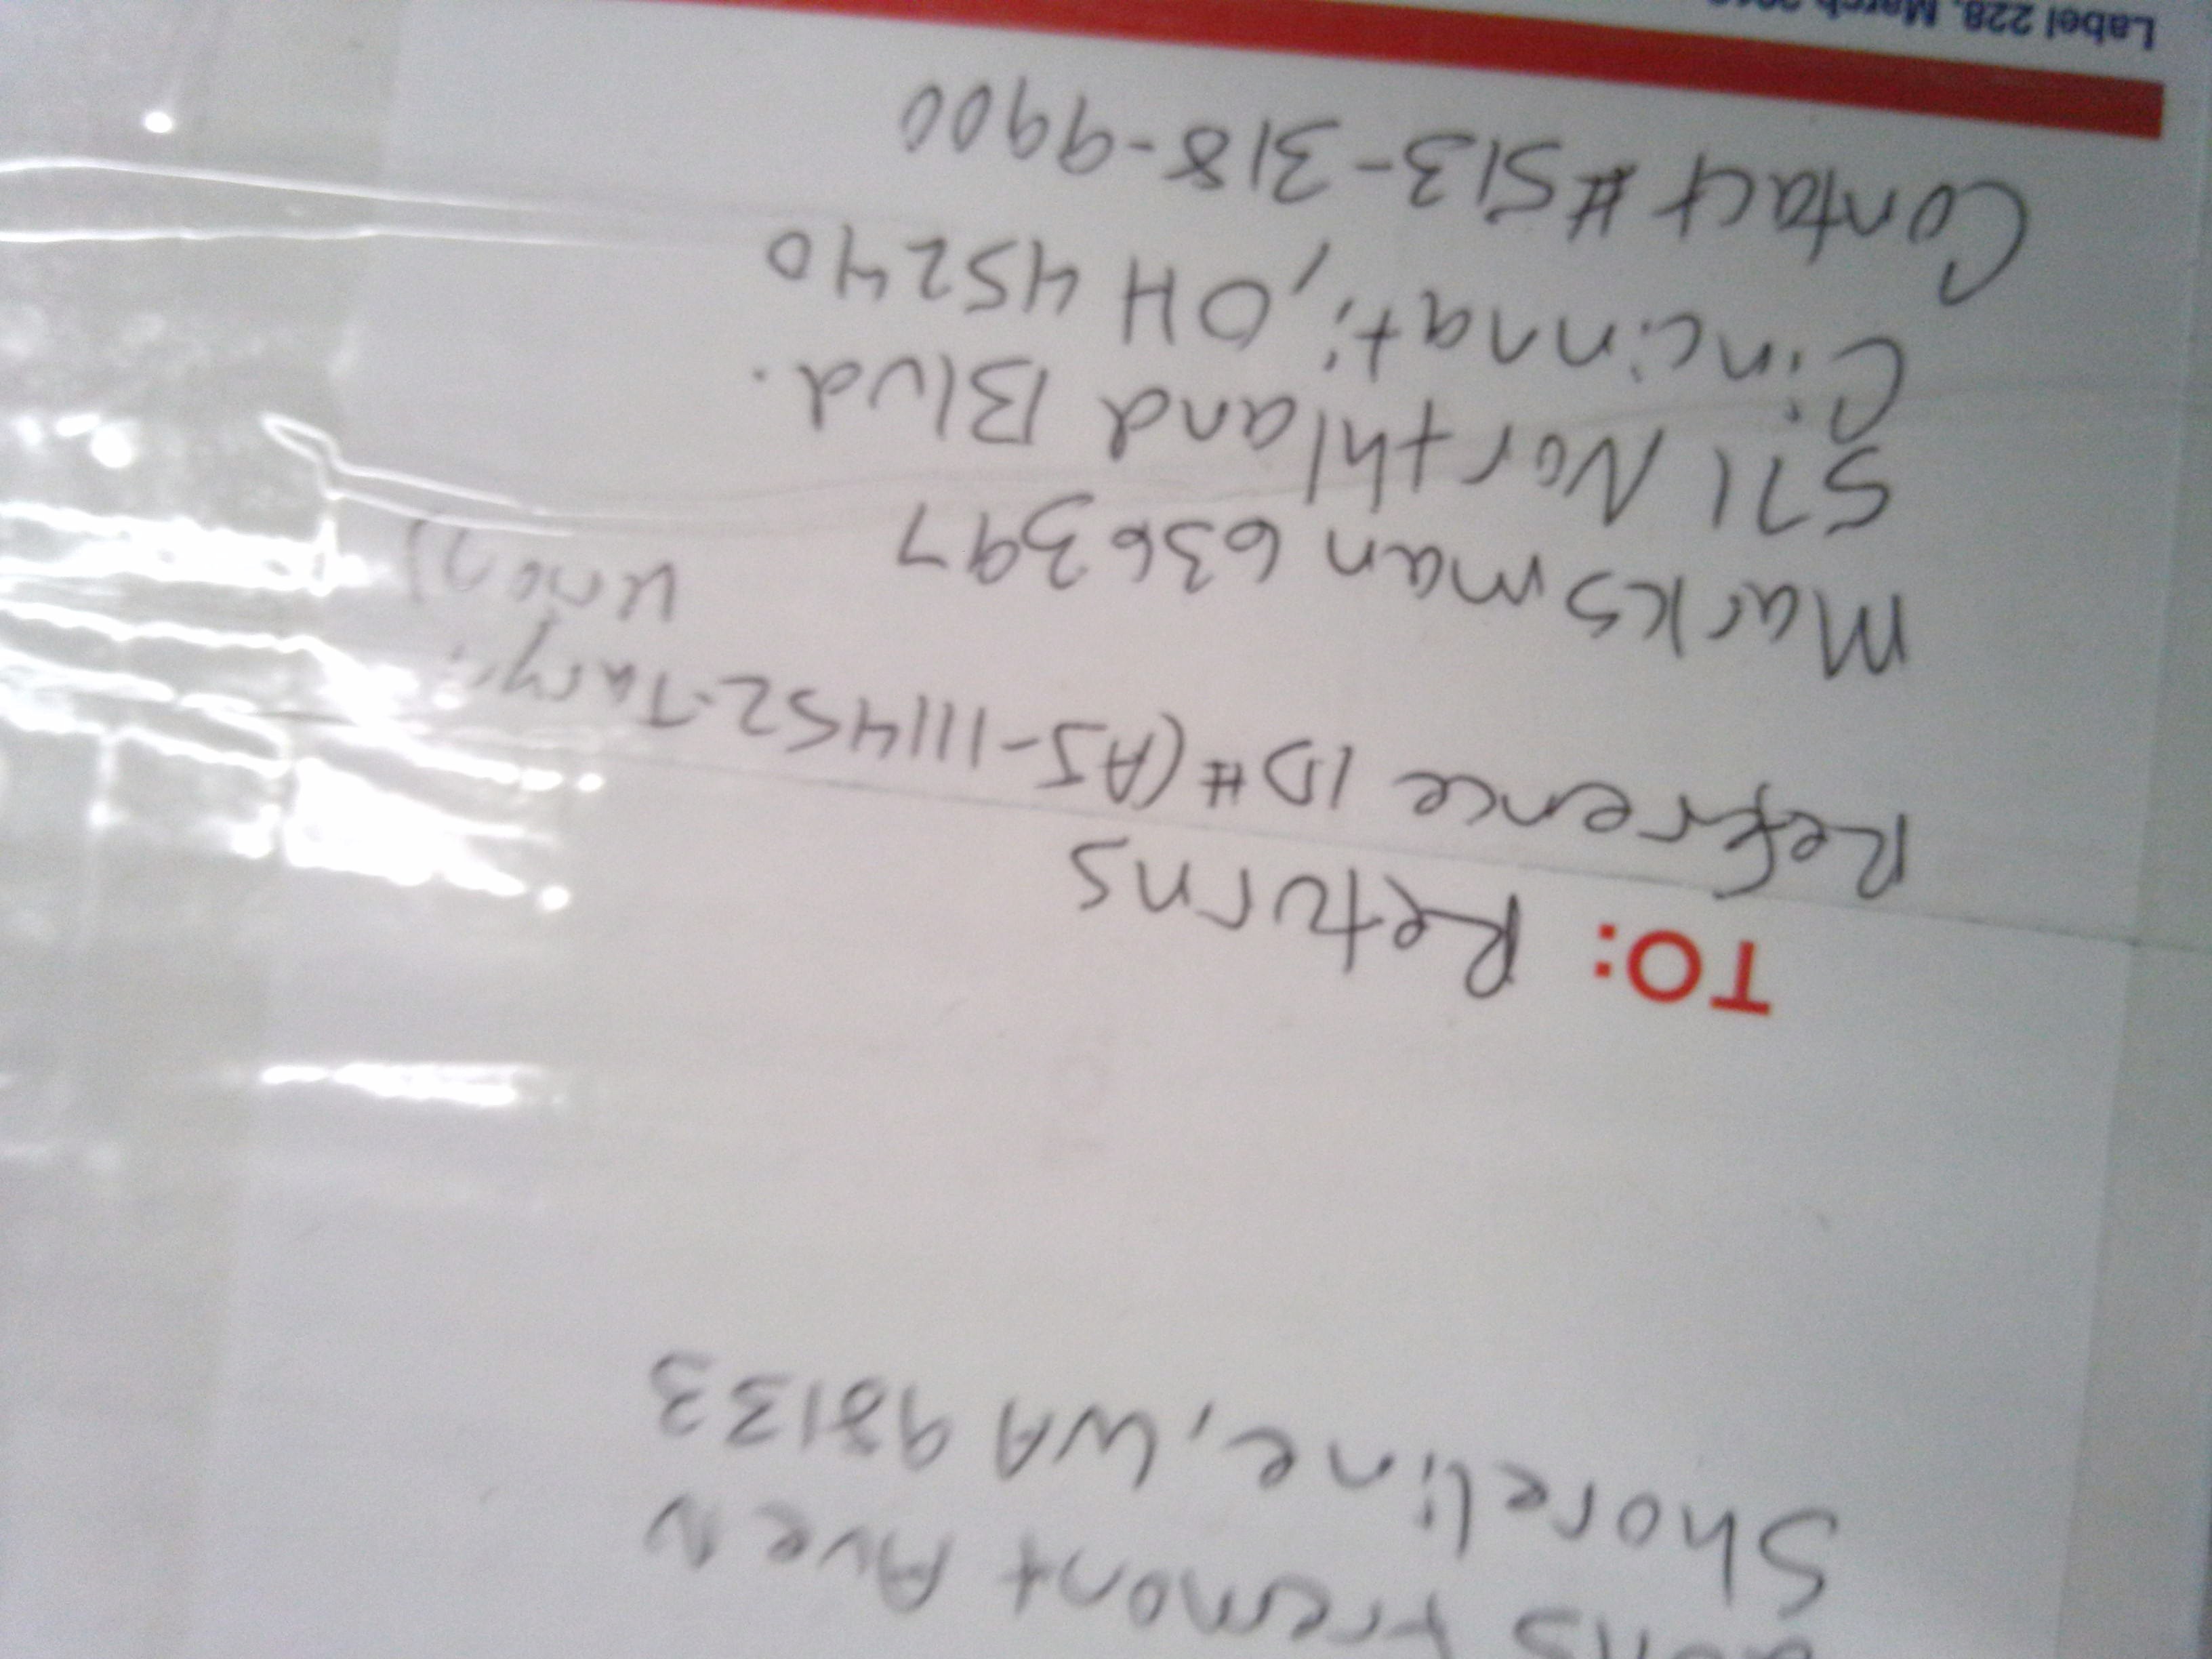 Fremont Ave N
Shoreline, WA 98133
TO: Returns
Reference ID # (AJ-111452-Tary
Marksman 636397
571 Northland Blvd.
Cincinnati, OH 45240
Contact #513-318-9900
Label 228, March